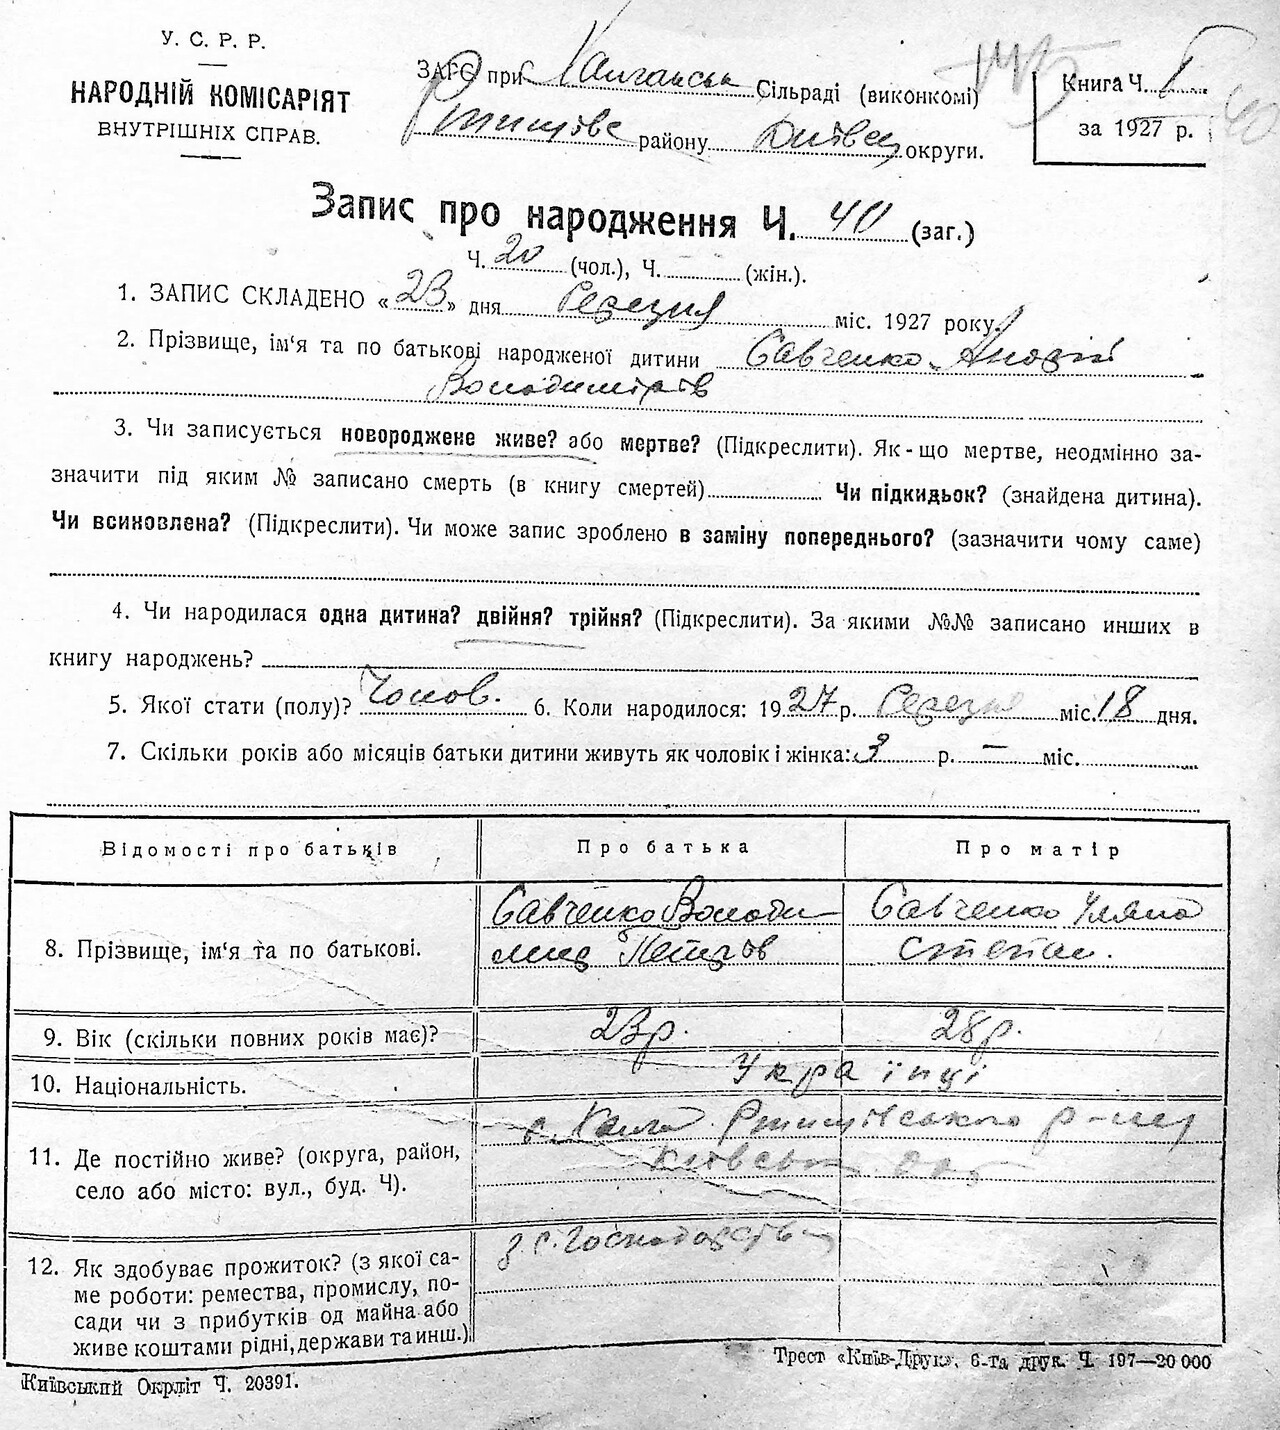 У. С. Р. Р.
НАРОДНІЙ КОМІСАРІЯТ
ВНУТРІШНІХ СПРАВ.
ЗАГС при Калганськ Сільраді (виконкомі)
району округи.
Книга Ч. I
за 1927 р.
40
Запис про народження Ч. 40 (заг.)
Ч. 20 (чол.), Ч. — (жін.).
1. ЗАПИС СКЛАДЕНО «23» дня Серпня міс. 1927 року.
2. Прізвище, ім'я та по батькові народженої дитини Савченко Андрій
Володимирів
3. Чи записується новороджене живе? або мертве? (Підкреслити). Як-що мертве, неодмінно за-
значити під яким № записано смерть (в книгу смертей) Чи підкидьок? (знайдена дитина).
Чи всиновлена? (Підкреслити). Чи може запис зроблено в заміну попереднього? (зазначити чому саме)
4. Чи народилася одна дитина? двійня? трійня? (Підкреслити). За якими №№ записано инших в
книгу народжень?
5. Якої стати (полу)? Чолов. 6. Коли народилося: 1927 р. Серпня міс. 18 дня.
7. Скільки років або місяців батьки дитини живуть як чоловік і жінка: 3 р. — міс.
Відомості про батьків Про батька Про матір
8. Прізвище, ім'я та по батькові. Савченко Володи
мир Петров
Савченко Уляна
Степан.
9. Вік (скільки повних років має)? 23р. 28р.
10. Національність. Українці
11. Де постійно живе? (округа, район,
село або місто: вул., буд. Ч).
с. Ржищівського р-ну
Київськ окр
12. Як здобуває прожиток? (з якої са-
ме роботи: ремества, промислу, по-
сади чи з прибутків од майна або
живе коштами рідні, держави та инш.)
з с. господарств
Київський Окрліт Ч. 20391.
Трест «Київ-Друк», 6-та друк. Ч. 197—20 000